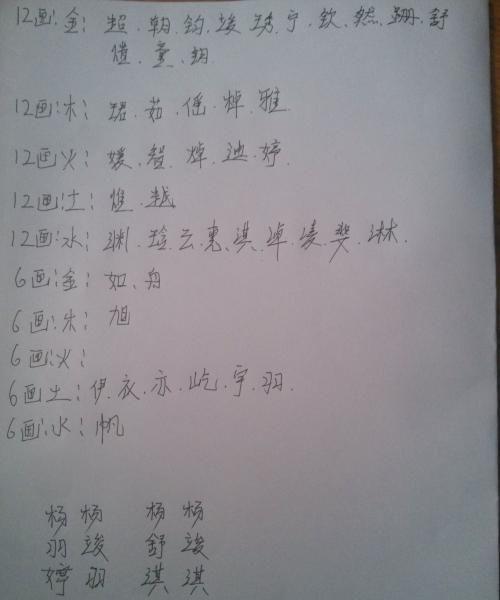 12画:金: 超.朝.钧.竣.琇.宁.钦.然.珊.舒
童.钥
12画:木: 珺.茹.傜.棹.雅.
12画火: 媛.智.焯.迪.婷.
12画:土: 雄.越
12画:水: 渊.琀.云.惠.淇.淖.凌.斐.淋.
6画:金: 如.舟
6画:木: 旭
6画:火:
6画土: 伊.衣.亦.屹.宇.羽.
6画:水: 帆
杨 杨 杨 杨
羽 竣 舒 竣
婷 羽 淇 淇